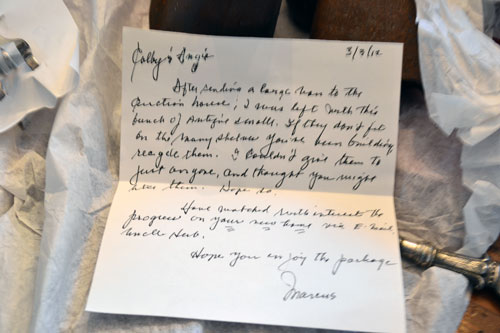 3/3/12
Colby & Angie
After sending a large van to the
auction house, I was left with this
bunch of Antique smalls. If they don't fit
on the many shelves you've been building
recycle them. I couldn't give them to
just anyone, and thought you might
like them. Hope so.
Have watched with interest the
progress on your new home via E-mail,
Uncle Herb.
Hope you enjoy the package
Marcus